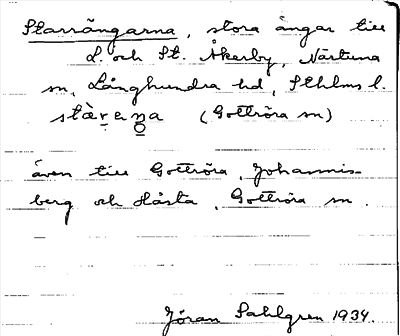 Starrängarna, stora ängar till
L. och St. Åkerby, Närtuna
sn, Långhundra hd, Sthlms l.
stàr̥eṇa (Gottröra sn)
även till Gottröra, Johannis-
berg och Håsta, Gottröra sn.
Jöran Sahlgren 1934.